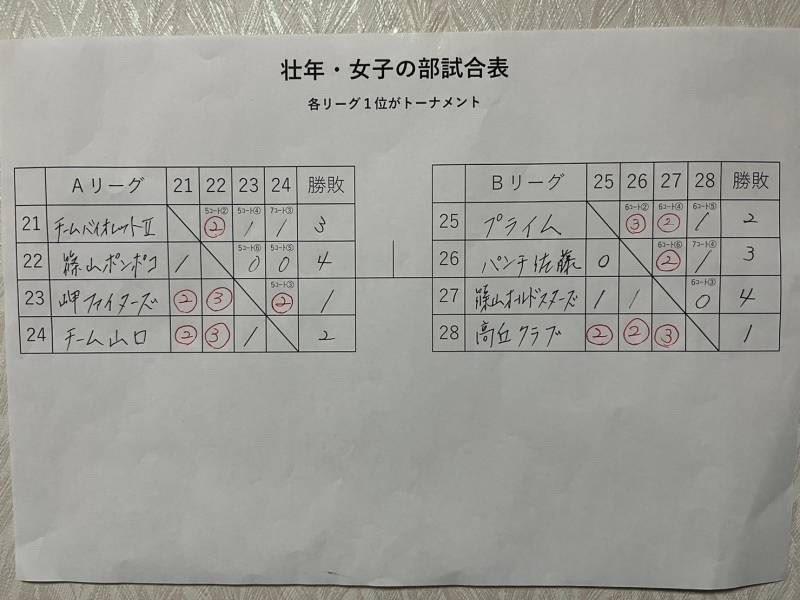 壮年・女子の部試合表
各リーグ１位がトーナメント
Aリーグ 21 22 23 24 勝敗
5コート② 5コート④ 7コート③
21 チームバイオレットⅡ ② 1 1 3
5コート⑥ 5コート⑤
22 篠山ポンポコ 1 0 0 4
5コート③
23 岬ファイターズ ② ③ ② 1
24 チーム山口 ② ③ 1 2
Bリーグ 25 26 27 28 勝敗
6コート② 6コート④ 6コート⑤
25 プライム ③ ② 1 2
6コート⑥ 7コート④
26 パンチ佐藤 0 ② 1 3
6コート③
27 篠山オールドスターズ 1 1 0 4
28 高丘クラブ ② ② ③ 1